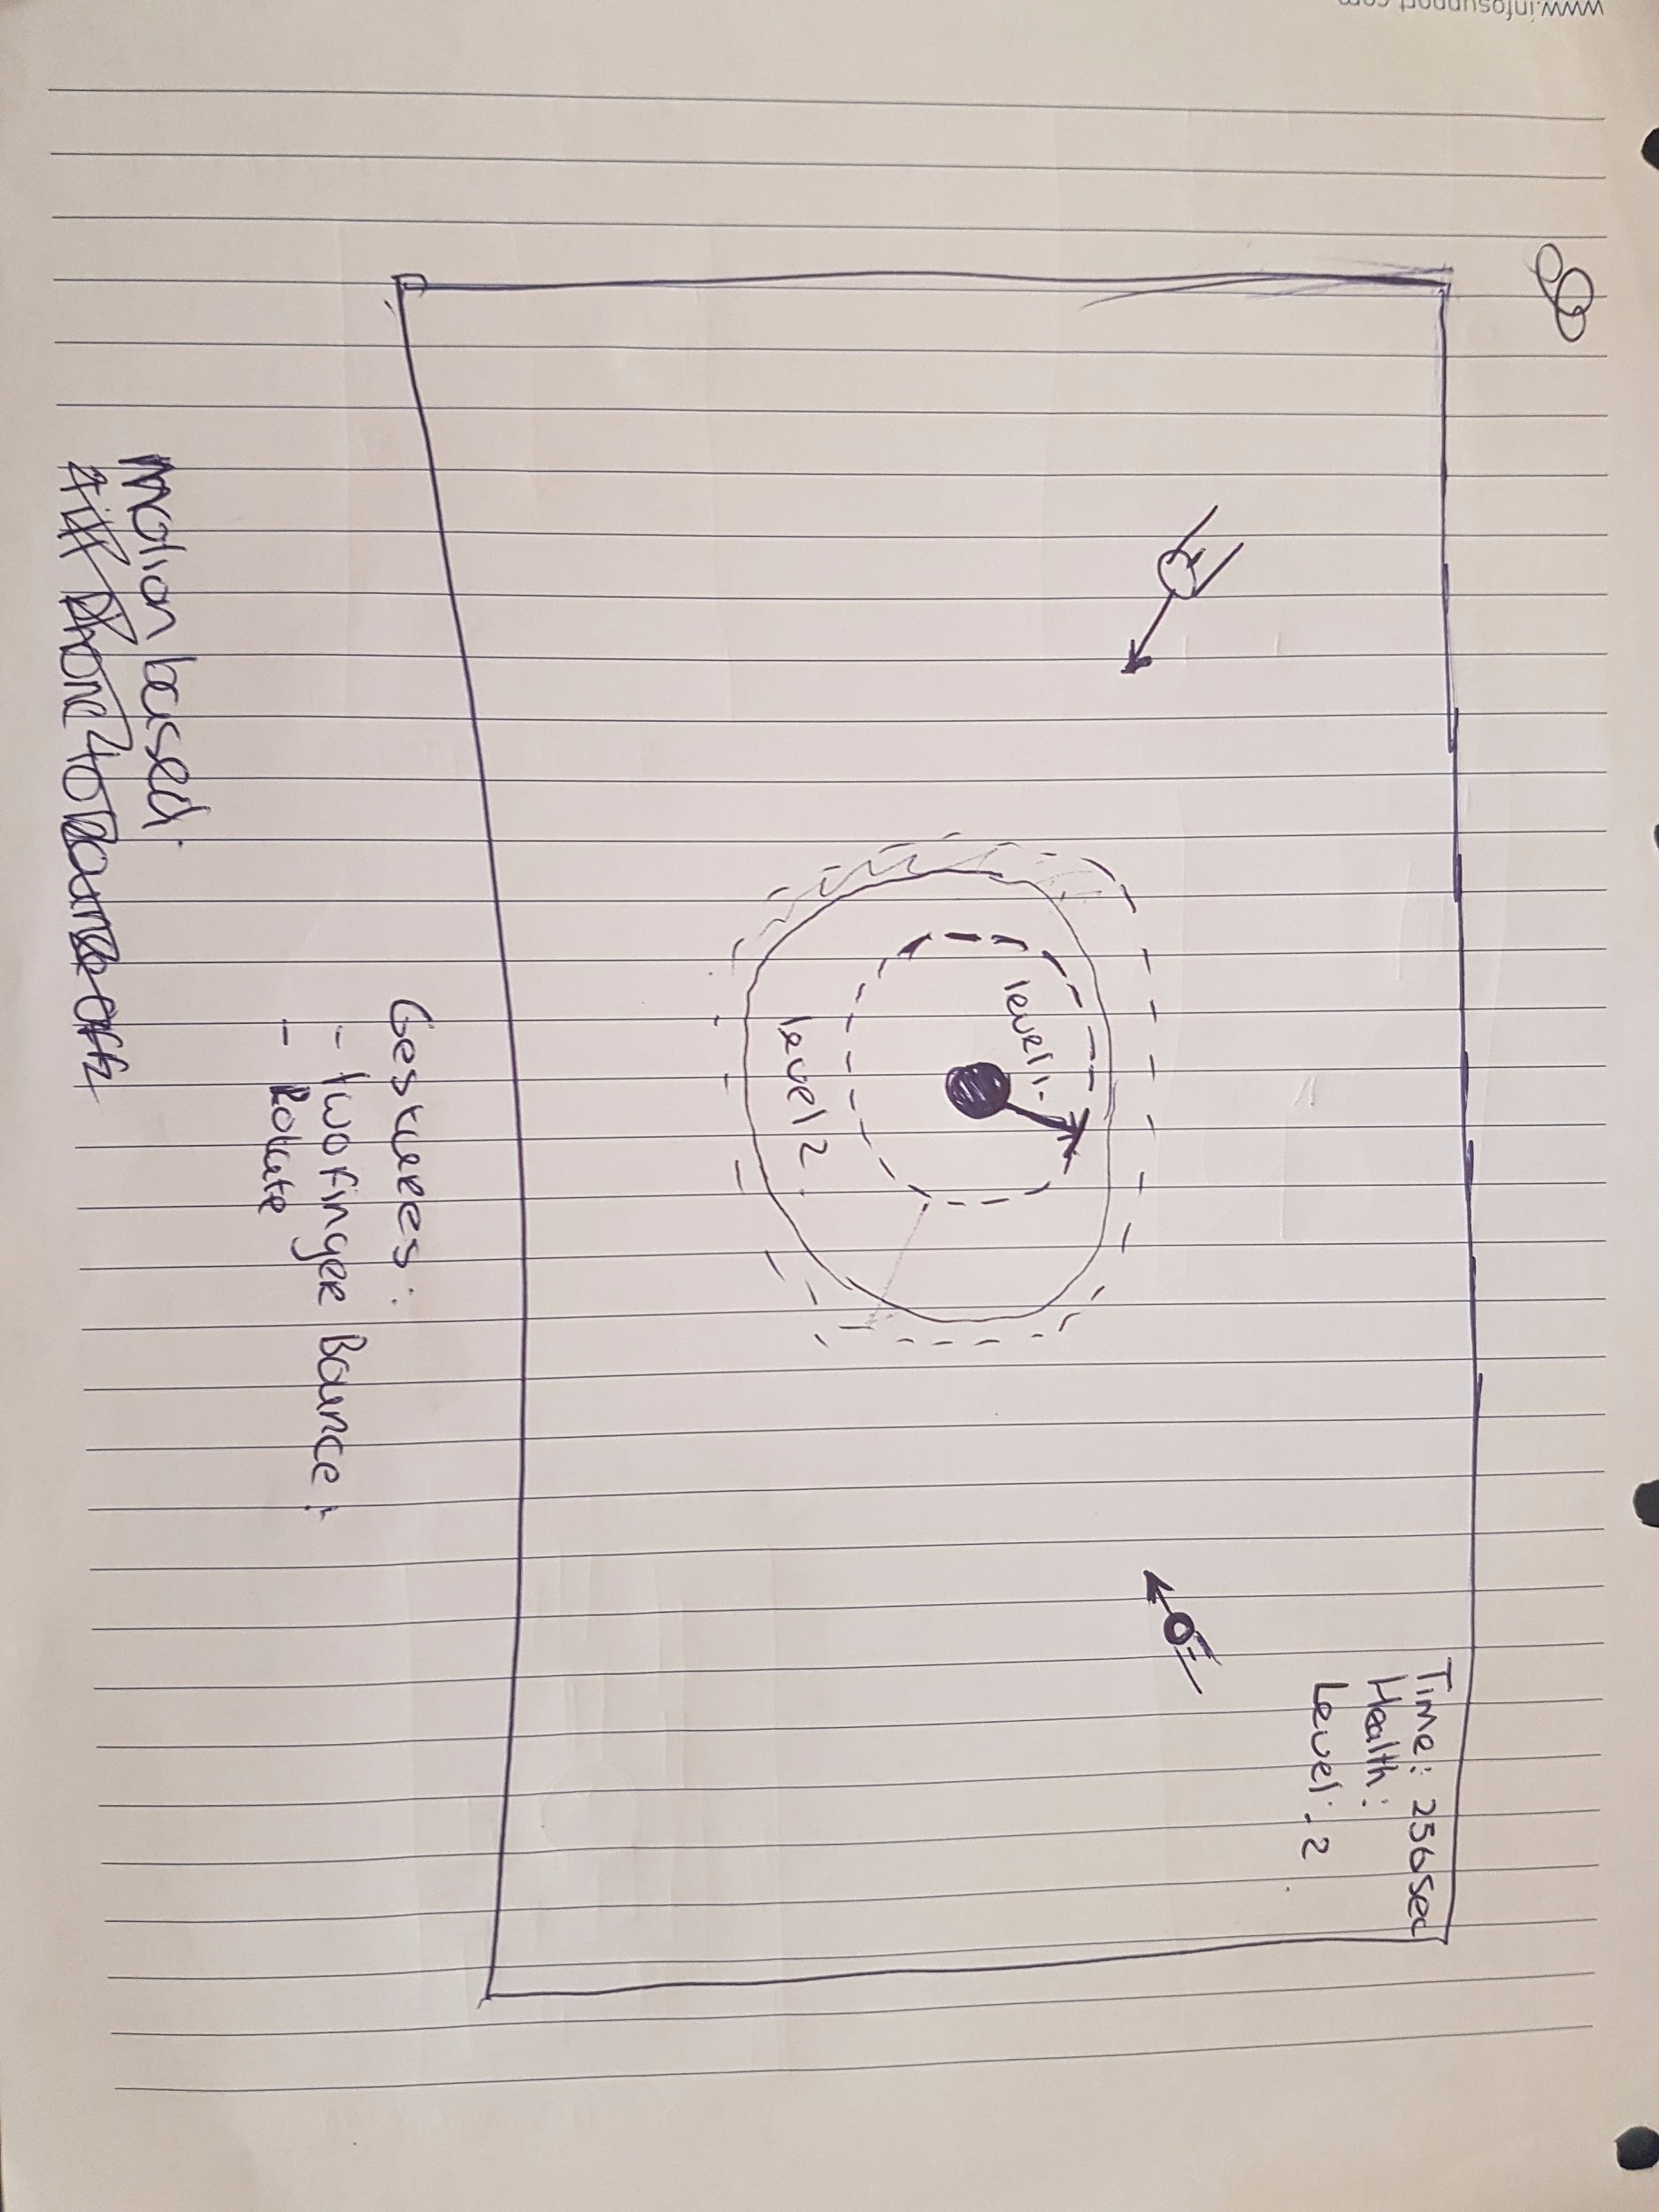 www.infosupport.com
Time: 256 sec
Health:
Level: 2
level 1.
level 2
Gestures:
- Two finger Bounce;
- Rotate
Motion based: